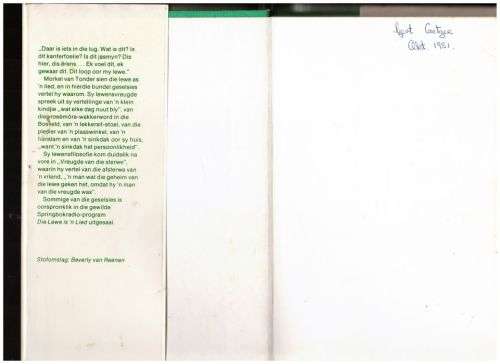 „Daar is iets in die lug. Wat is dit? Is
dit kanferfoelie? Is dit jasmyn? Dis
hier, dis êrens. . . Ek voel dit, ek
gewaar dit. Dit loop oor my lewe."
Morkel van Tonder sien die lewe as
'n lied, en in hierdie bundel geselsies
vertel hy waarom. Sy lewensvreugde
spreek uit sy vertellinge van 'n klein
kindjie „wat elke dag nuut bly", van
die grootmôre-wakkerword in die
Bosveld, van 'n lekkersit-stoel, van die
plesier van 'n plaaswinkel, van 'n
hanslam en van 'n sinkdak oor sy huis,
„want 'n sinkdak het persoonlikheid".
Sy lewensfilosofie kom duidelik na
vore in „Vreugde van die sterwe",
waarin hy vertel van die afsterwe van
'n vriend, „'n man wat die geheim van
die lewe geken het, omdat hy 'n man
van die vreugde was".
Sommige van die geselsies is
oorspronklik in die gewilde
Springbokradio-program
Die Lewe is 'n Lied uitgesaai.
Stofomslag: Beverly van Reenen
1981.